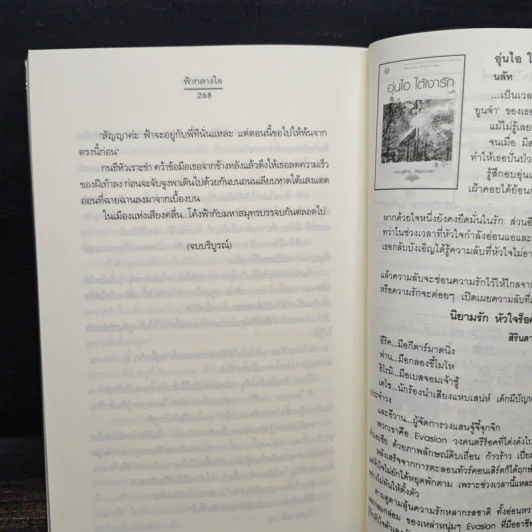 ฟ้ากลางใจ
268
'สัญญาค่ะ ฟ้าจะอยู่กับพี่ที่นั่นแหละ แต่ตอนนี้ขอไปให้พ้นจาก
ตรงนี้ก่อน'
กนธีหัวเราะขำ คว้าข้อมือเธอจากข้างหลังแล้วดึงให้เธอลดความเร็ว
ของฝีเท้าลง ก่อนจะจับจูงพาเดินไปด้วยกันบนถนนเลียบหาดใต้แสงแดด
อ่อนที่ฉายฉานลงมาจากเบื้องบน
ในเมืองแห่งเสียงคลื่น...โค้งฟ้ากับมหาสมุทรบรรจบกันตลอดไป
(จบบริบูรณ์)
อุ่นไอ ใ
นลัท
...เป็นเวลา
แม้ไม่รู้เลย
จนเมื่อ
ทำให้เธอปั่นป่ว
รู้สึกอบอุ่น
เฝ้าคอยได้ย้อน
อุ่นไอ ใต้เงารัก
หากด้วยใจหนึ่งยังคงยึดมั่นในรัก ส่วนอี
ทว่าในช่วงเวลาที่หัวใจกำลังอ่อนแอและ
เธอกลับบังเอิญได้รู้ความลับที่หัวใจไม่อา
แล้วความลับจะซ่อนความรักไว้ให้ไกลจาก
หรือความรักจะค่อยๆ เปิดเผยความลับที่
นิยามรัก หัวใจร็อค
สิรินดา
อีริค...มือกีตาร์มาดนิ่ง
ฟาน...มือกลองขี้โมโห
ฮิโรมิ...มือเบสจอมเจ้าชู้
เคโซ...นักร้องนำเสียงแหบเสน่ห์ เด็กมีปัญห
ประจำวง
และอีวาน...ผู้จัดการวงแสนจู้จี้จุกจิก
พวกเขาคือ Evasion วงดนตรีร็อคที่โด่งดังไป
ด้วยภาพลักษณ์ดิบเถื่อน ก้าวร้าว
หลังเสร็จจากการตะลอนทัวร์คอนเสิร์ตก็ได้ฤกษ์
ได้หยุดพักตาม เพราะช่วงเวลานี้แหละ
ความรักหลากรสชาติ ทั้งอ่อน
ของเหล่าหนุ่มๆ Evasion